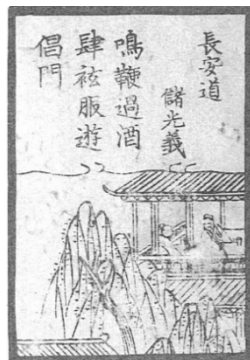 長安道
儲光義
鳴鞭過酒
肆袨服遊
倡門